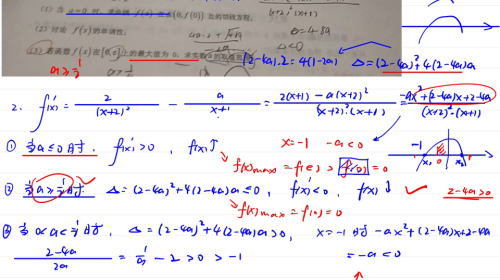 (1) 当 a=0 时，求曲线 f(x) 在点(0, f(0)) 处的切线方程;
(x+2)²(x+1)
(2) 讨论 f(x) 的单调性;
△<0
(3) 若函数 f(x) 在[0, e]上的最大值为 0, 求实数a的取值范围
a≥½
(2-4a)·2=4(1-2a) △=(2-4a)²+4(2-4a)a
2. f'(x)= 2/(x+2)² - a/(x+1) = (2(x+1)-a(x+2)²)/((x+2)²·(x+1)) = (-ax²+(2-4a)x+2-4a)/((x+2)²·(x+1))
① 当a≤0时, f'(x)>0, f(x)↑ x=-1 -a<0
-1 x₁ x₂
→ f(x)max=f(e)>f(0)=0
② 当a≥½时 △=(2-4a)²+4(2-4a)a≤0, f'(x)<0, f(x)↓ 2-4a>0
→ f(x)max=f(0)=0
③ 当0<a<½时, △=(2-4a)²+4(2-4a)a>0, x=-1时 -ax²+(2-4a)x+2-4a
(2-4a)/2a = 1/a -2>0>-1 =-a<0